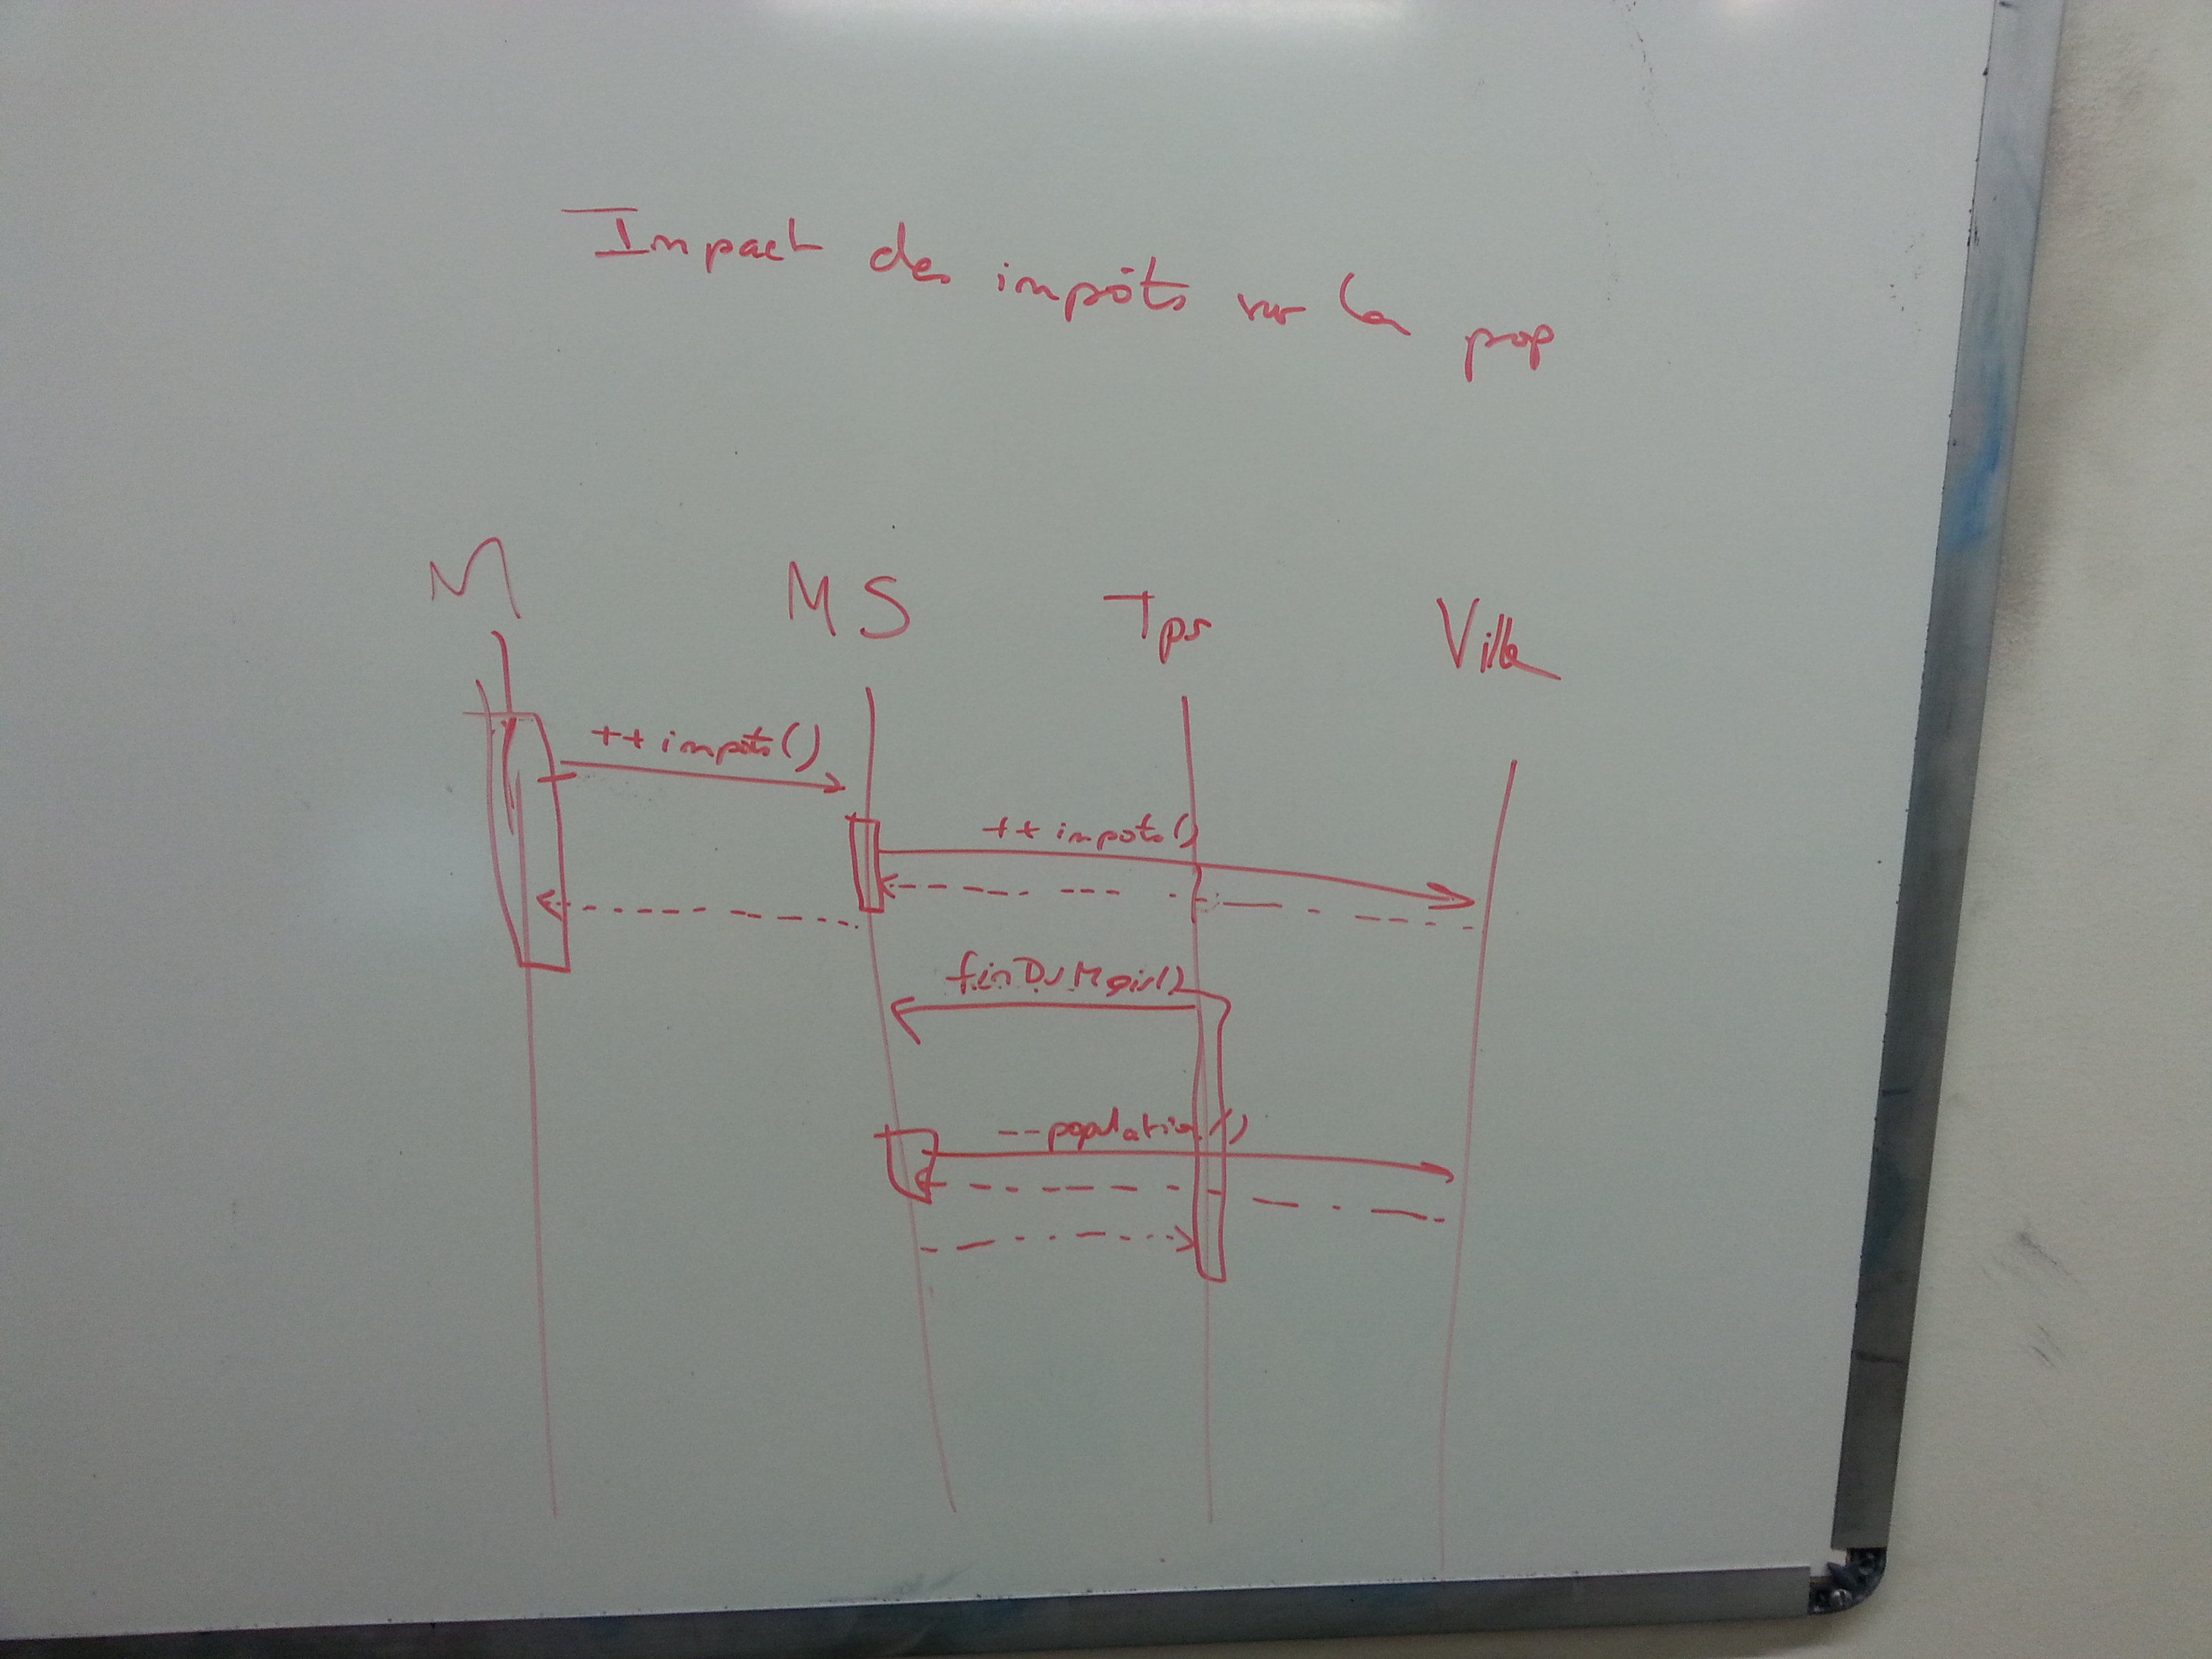 Impact des impôts sur la pop
M MS Tps Ville
++ impots()
++ impots()
--population()